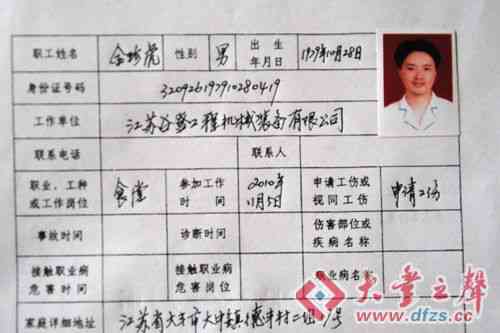 职工姓名 金珍虎 性别 男 出生年月日 1979年10月28日
身份证号码 320926197910280419
工作单位 江苏谷登工程机械装备有限公司
联系电话 联系人
职业、工种或工作岗位 食堂 参加工作时间 2010年11月5日 申请工伤或视同工伤 申请工伤
事故时间 诊断时间 伤害部位或疾病名称
接触职业病危害时间 接触职业病危害岗位 职业病名称
家庭详细地址 江苏省大丰市大中镇德丰村二组
大丰之声
www.dfzs.cc